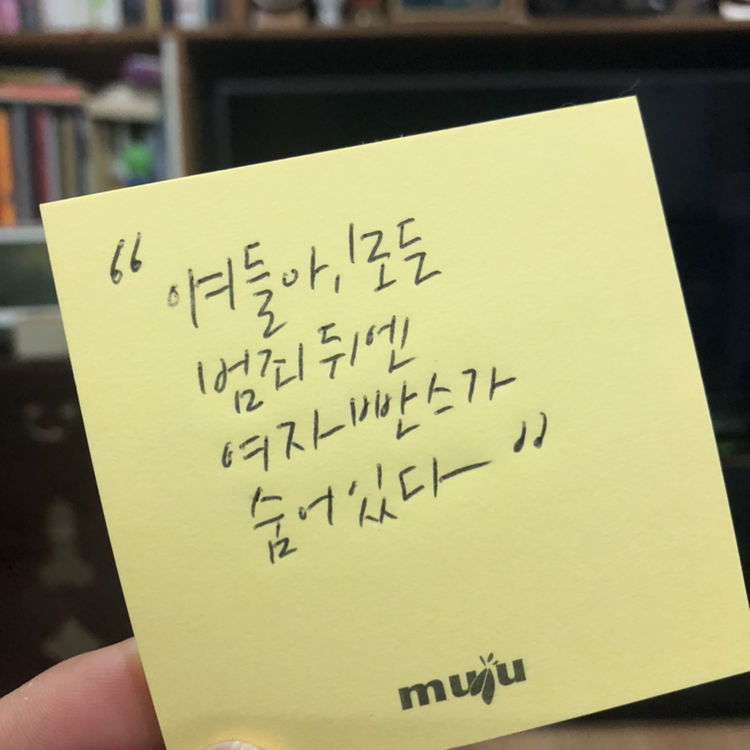 “얘들아, 모든
범죄 뒤엔
여자 빤스가
숨어있다”
muju